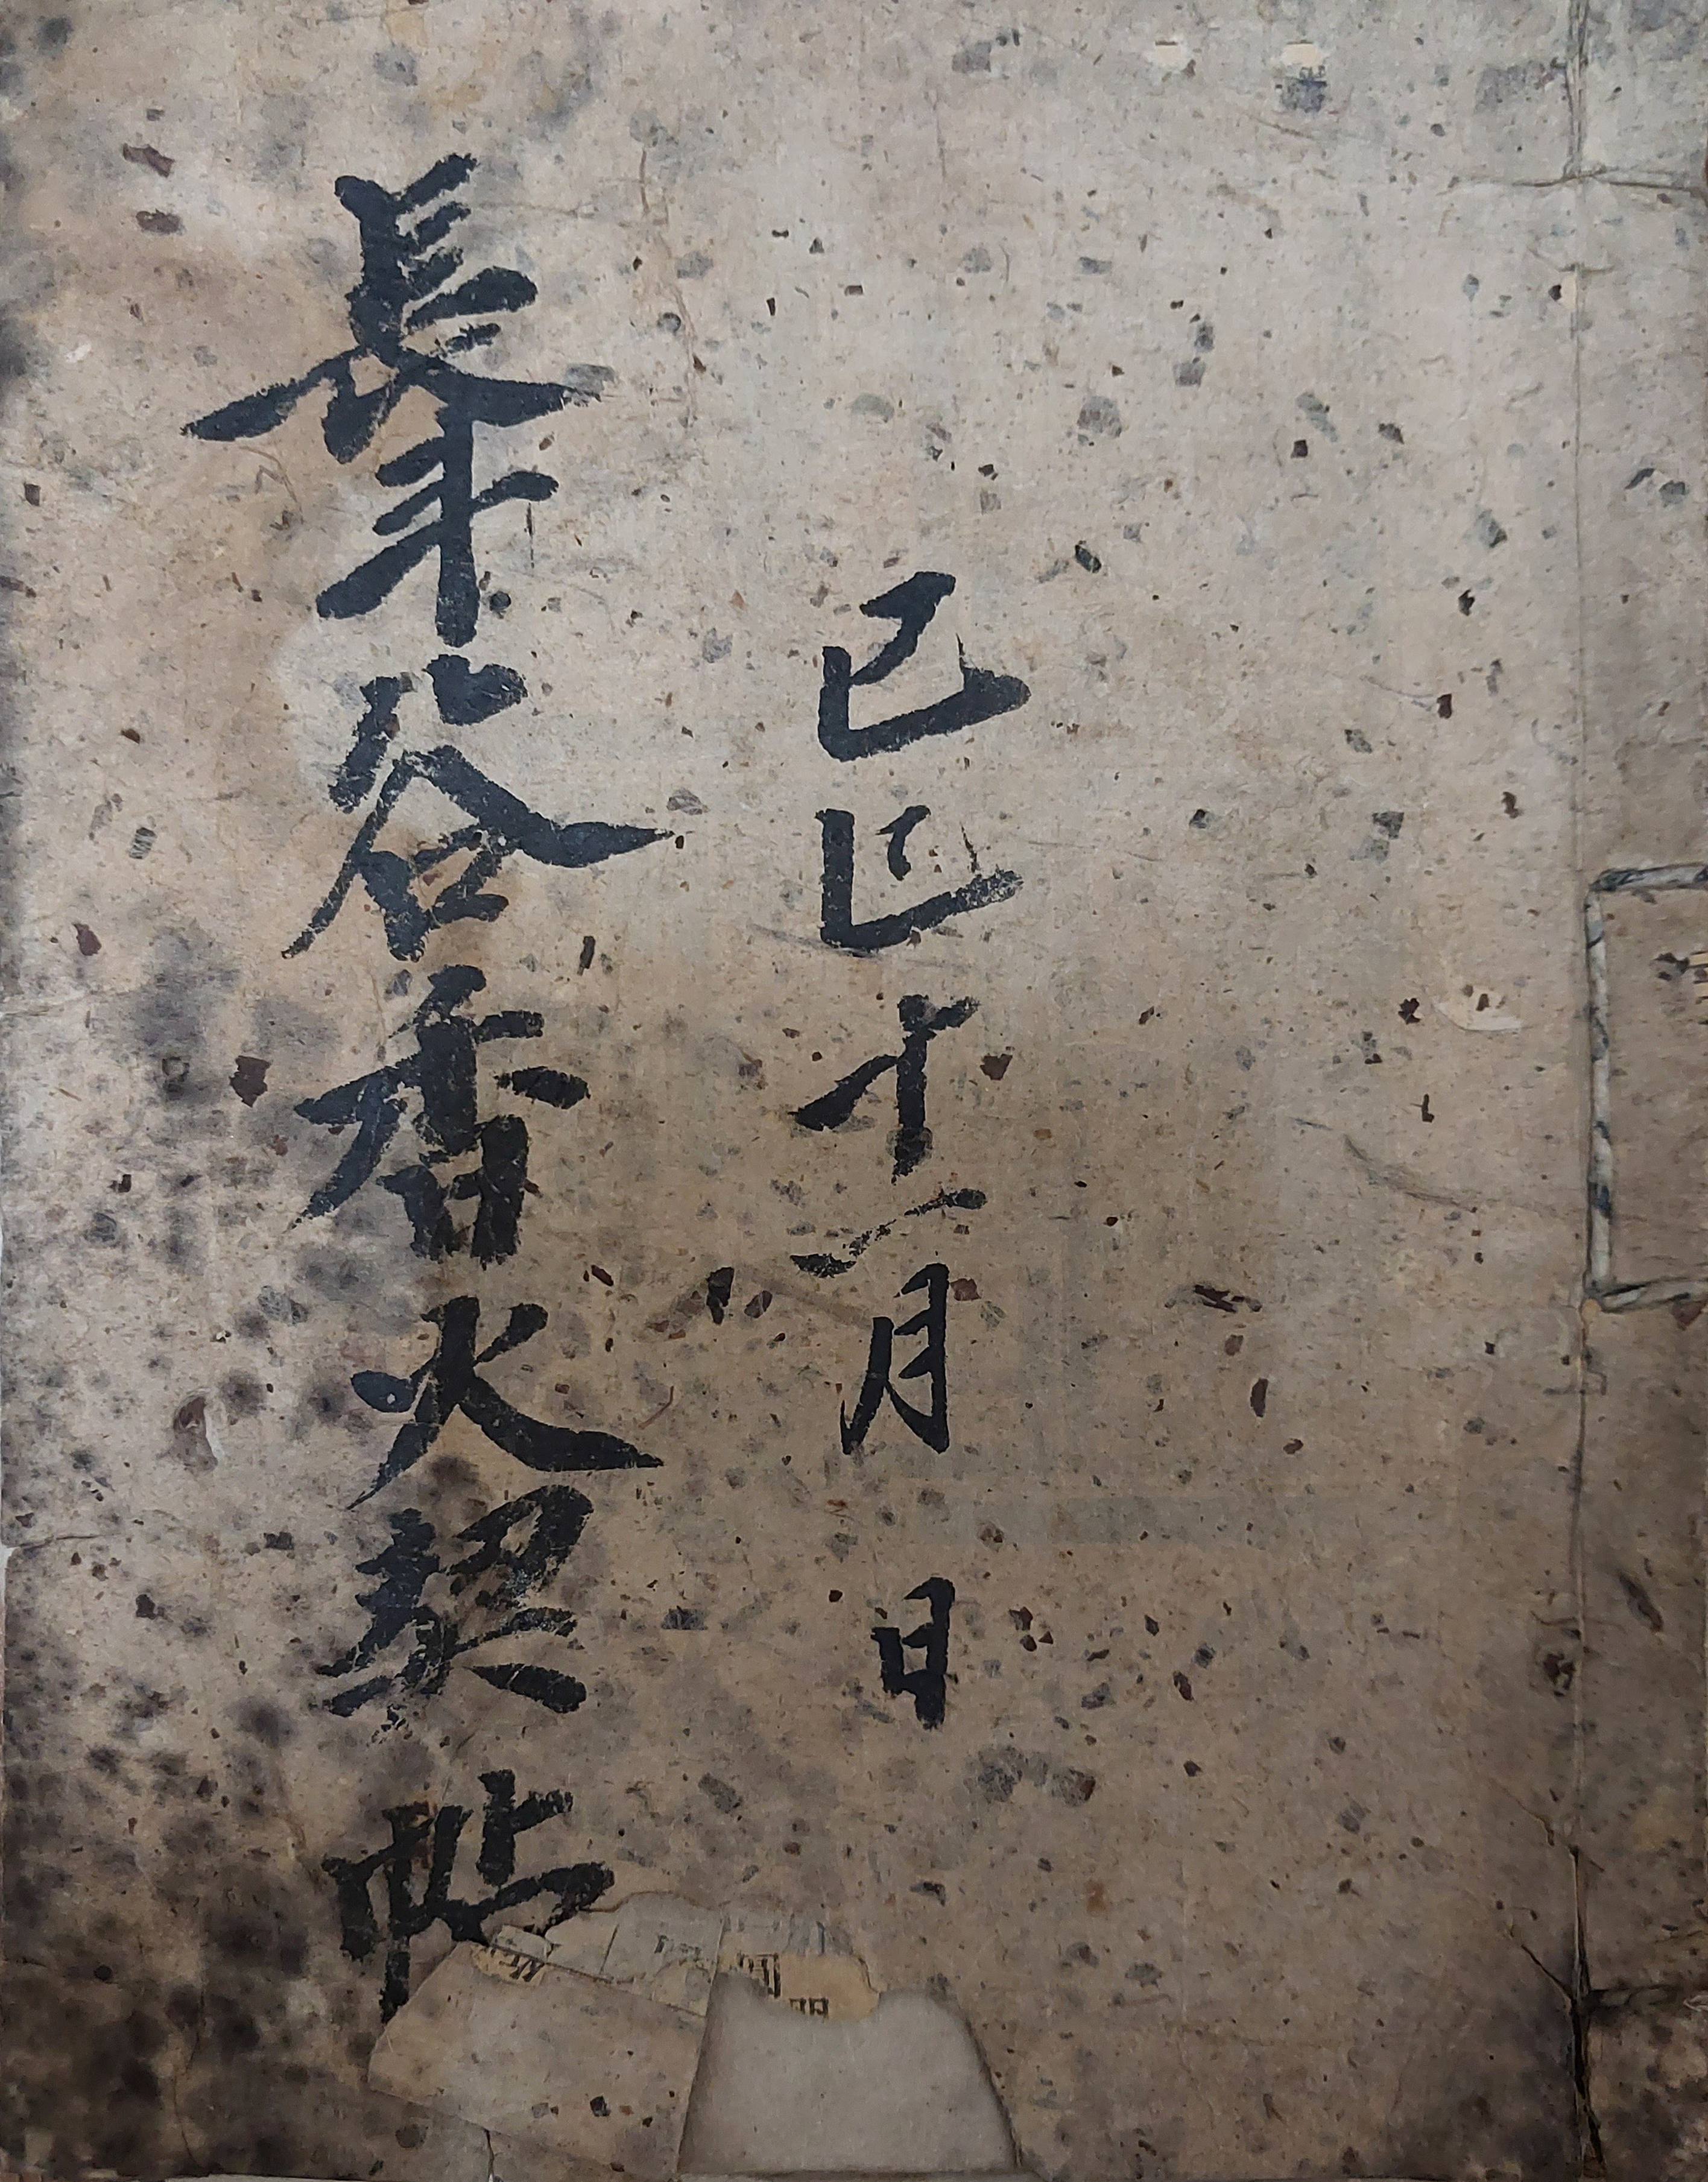 己巳十二月 日
長谷香火契帖